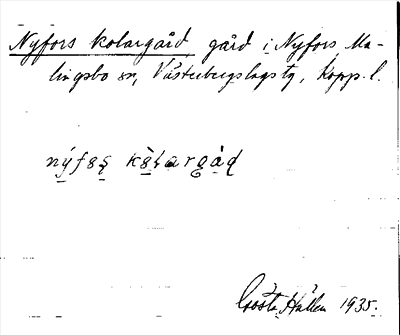 Nyfors kolargård gård i Nyfors, Ma-
lingsbo sn, Västerbergslags tg, Kopp. l.
Gösta Hallén 1935.